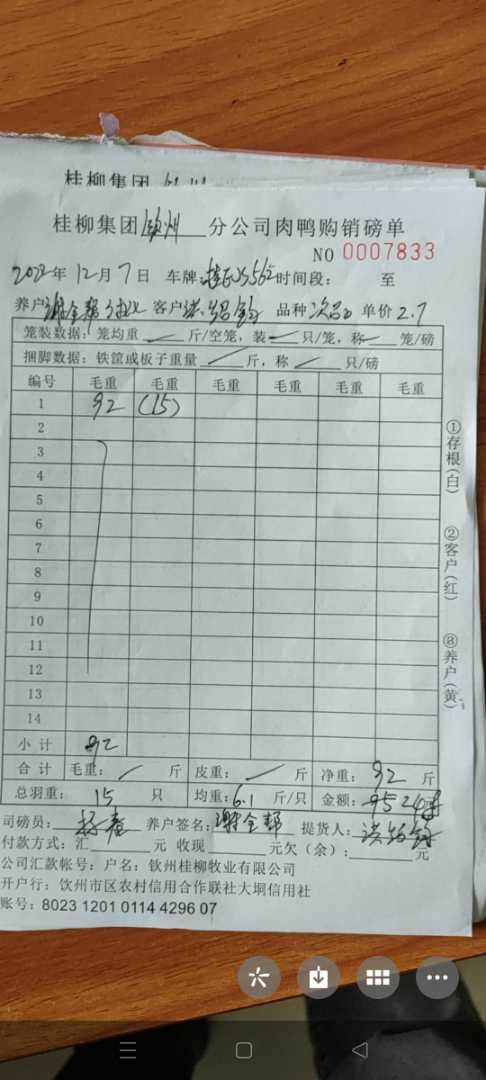 桂柳集团
桂柳集团钦州分公司肉鸭购销磅单
NO 0007833
2022年12月7日 车牌: 时间段: 至
养户 客户 品种 次品 单价 2.7
笼装数据: 笼均重 斤/空笼, 装 只/笼, 称 笼/磅
捆脚数据: 铁筐或板子重量 斤, 称 只/磅
编号 毛重 毛重 毛重 毛重 毛重 毛重
1 92 (15)
2
3
4
5
6
7
8
9
10
11
12
13
14
小计 92
合计 毛重: 斤 皮重: 斤 净重: 92 斤
总羽重: 15 只 均重: 6.1 斤/只 金额:
司磅员: 养户签名: 谢全帮 提货人:
付款方式: 汇 元 收现 元欠(余): 元
公司汇款帐号: 户名: 钦州桂柳牧业有限公司
开户行: 钦州市区农村信用合作联社大垌信用社
账号: 8023 1201 0114 4296 07
①存根(白)
②客户(红)
⑧养户(黄)